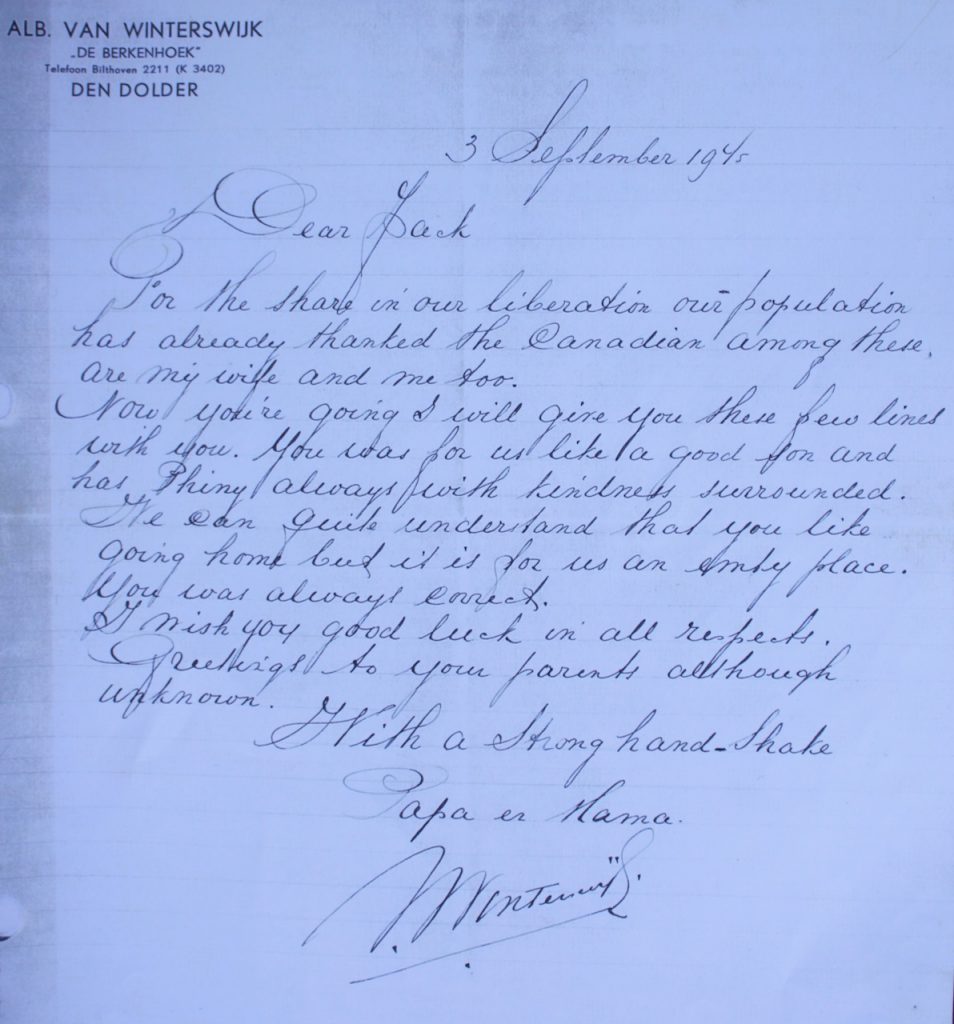 ALB. VAN WINTERSWIJK
„DE BERKENHOEK"
Telefoon Bilthoven 2211 (K 3402)
DEN DOLDER
3 September 1945
Dear Jack
For the share in our liberation our population
has already thanked the Canadian among these,
are my wife and me too.
Now you're going I will give you these few lines
with you. You was for us like a good son and
has Phiny always with kindness surrounded.
We can quite understand that you like
going home but it is for us an emty place.
You was always correct.
I wish you good luck in all respects.
Greetings to your parents although
unknown.
With a Strong hand-Shake
Papa en Mama.
Winterswijk.